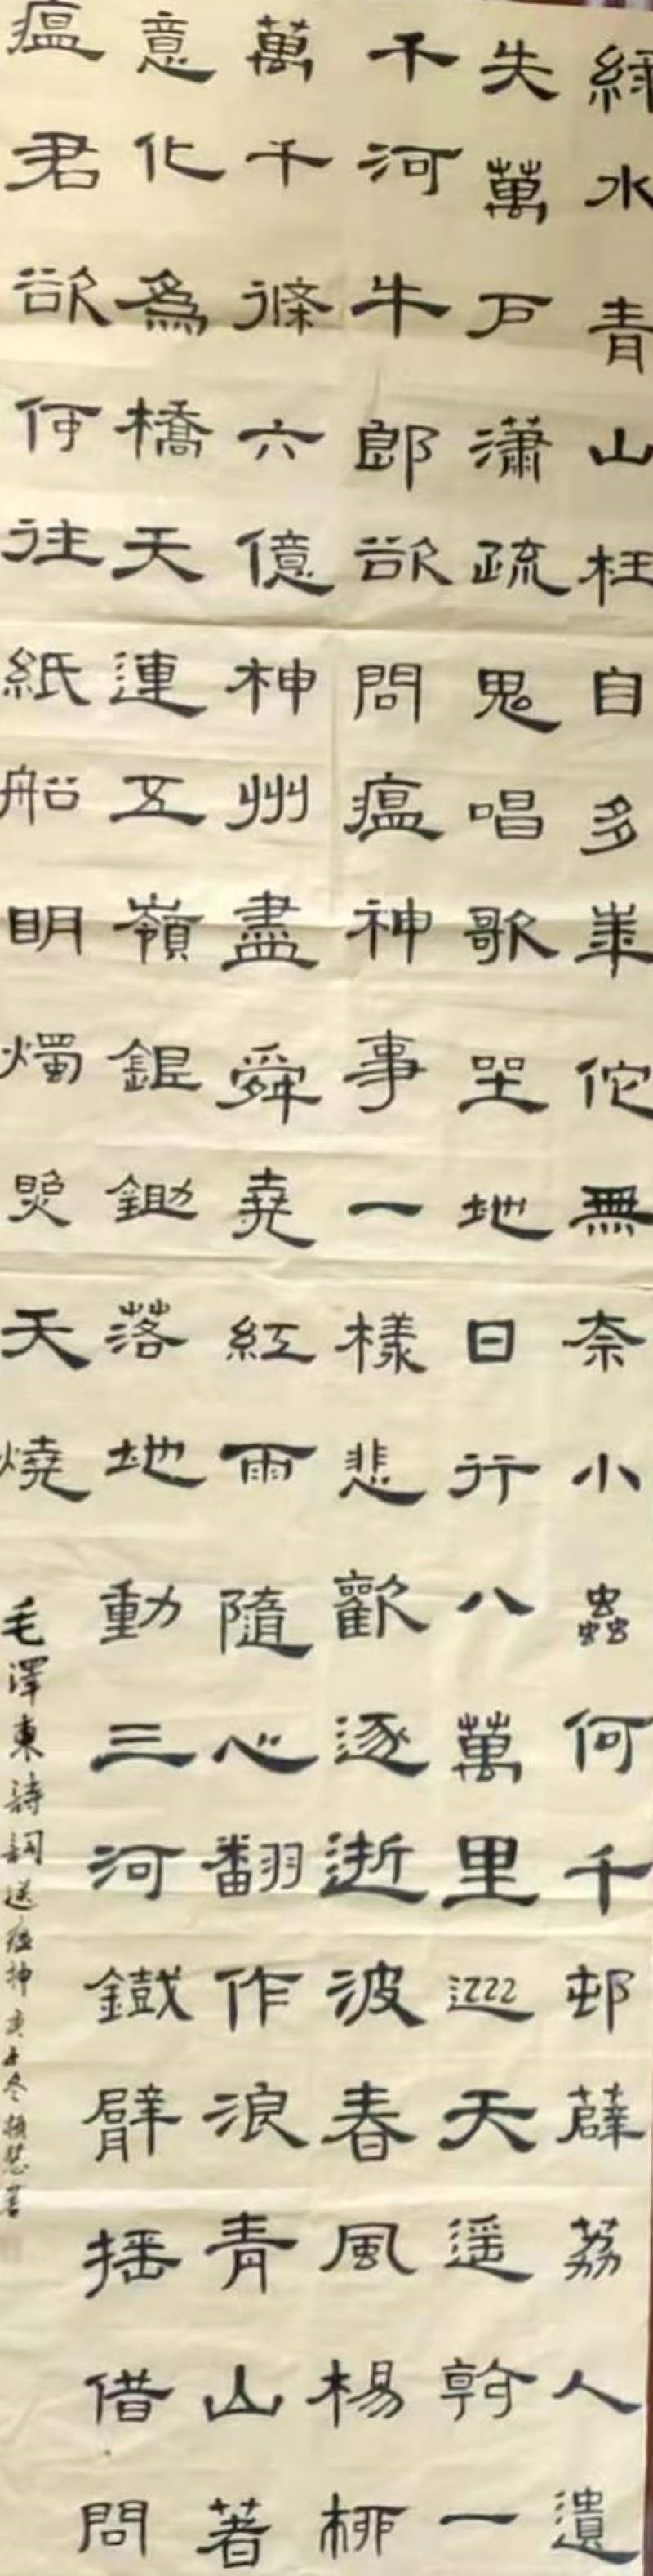 綠水青山枉自多華佗無奈小蟲何千邨薜荔人遺
失萬戶瀟疏鬼唱歌坐地日行八萬里巡天遙看一
千河牛郎欲問瘟神事一樣悲歡逐逝波春風楊柳
萬千條六億神州盡舜堯紅雨隨心翻作浪青山著
意化為橋天連五嶺銀鋤落地動三河鐵臂搖借問
瘟君欲何往紙船明燭照天燒
毛澤東詩詞送瘟神庚子冬書